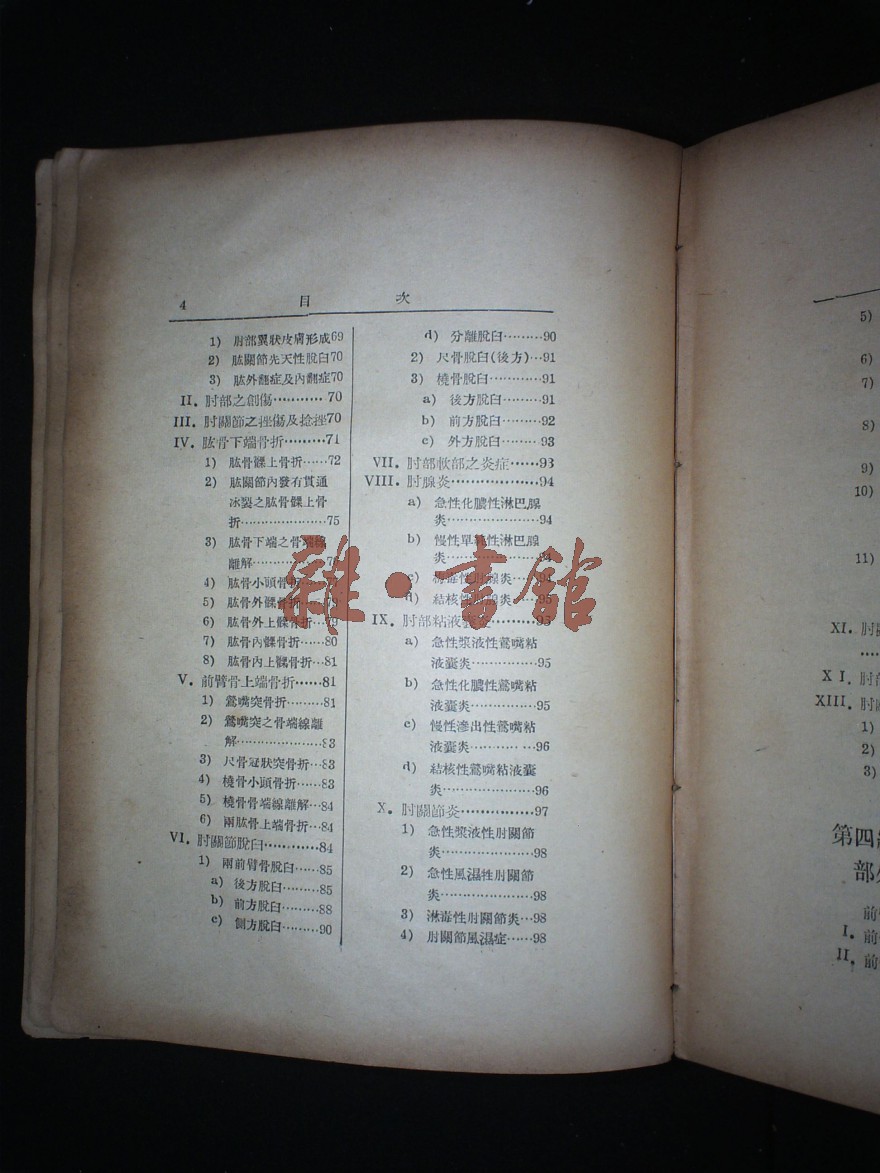 4 目 次
1) 肘部翼狀皮膚形成69
2) 肱關節先天性脫臼70
3) 肱外翻症及內翻症70
II. 肘部之創傷············70
III. 肘關節之挫傷及捻挫70
IV. 肱骨下端骨折··········71
1) 肱骨髁上骨折······72
2) 肱關節內發有貫通
之肱骨髁上骨
折·····················75
3) 肱骨下端之骨端線
離解
4) 肱骨小頭骨折
5) 肱骨外髁骨折
6) 肱骨外上髁骨折
7) 肱骨內髁骨折······80
8) 肱骨內上髁骨折···81
V. 前臂骨上端骨折······81
1) 鶯嘴突骨折·········81
2) 鶯嘴突之骨端線離
解·····················83
3) 尺骨冠狀突骨折···83
4) 橈骨小頭骨折······83
5) 橈骨骨端線離解···84
6) 兩肱骨上端骨折···84
VI. 肘關節脫臼············84
1) 兩前臂骨脫臼······85
a) 後方脫臼·········85
b) 前方脫臼·········88
c) 側方脫臼·········90
d) 分離脫臼·········90
2) 尺骨脫臼(後方)···91
3) 橈骨脫臼············91
a) 後方脫臼·········91
b) 前方脫臼·········92
c) 外方脫臼·········93
VII. 肘部軟部之炎症······93
VIII. 肘腺炎··················94
a) 急性化膿性淋巴腺
炎·····················94
b) 慢性單純性淋巴腺
炎·····················94
c) 黴毒性肘腺炎···94
d) 結核性肘腺炎···95
IX. 肘部粘液囊炎·········95
a) 急性漿液性鶯嘴粘
液囊炎···············95
b) 急性化膿性鶯嘴粘
液囊炎···············95
c) 慢性滲出性鶯嘴粘
液囊炎···············96
d) 結核性鶯嘴粘液囊
炎·····················96
X. 肘關節炎···············97
1) 急性漿液性肘關節
炎·····················98
2) 急性風濕性肘關節
炎·····················98
3) 淋毒性肘關節炎···98
4) 肘關節風濕症······98
雜·書館
5)
6)
7)
8)
9)
10)
11)
XI. 肘
X I. 肘
XIII. 肘
1)
2)
3)
第四
部
前
I. 前
II. 前